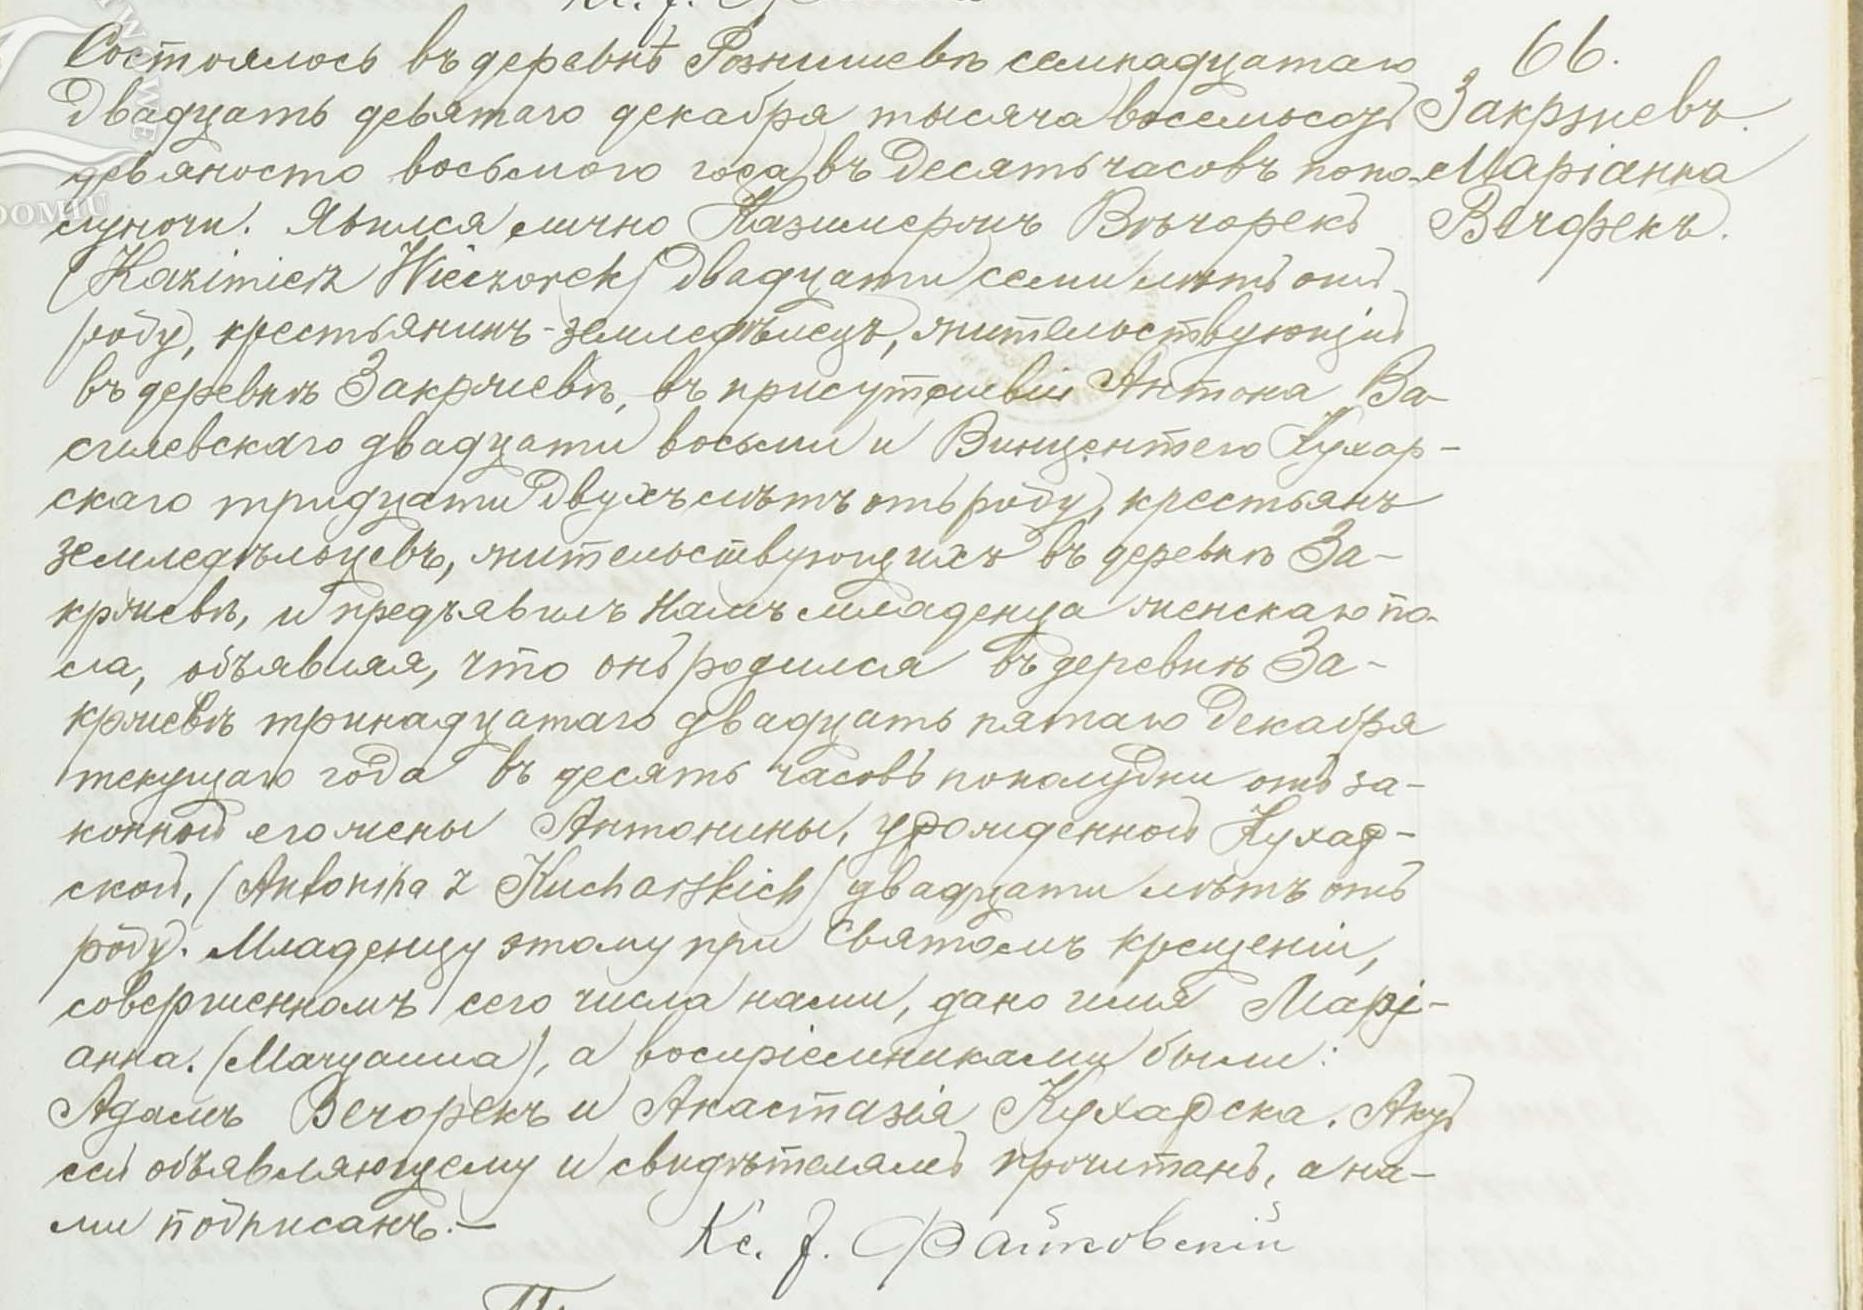 Состоялось въ деревнѣ Рознишевѣ семнадцатаго
Двадцать девятаго декабря тысяча восемьсотъ
девяносто восьмого года въ Десять часовъ попо-
луночи. Явился лично Казимержъ Вѣчорекъ
(Kazimierz Wieczorek) двадцати семи лѣтъ отъ
роду, крестьянинъ-земледѣлецъ, жительствующій
въ деревнѣ Закржевѣ, въ присутствіи Антона Ва-
силевскаго двадцати восьми и Винцентего Кухар-
скаго тридцати двухъ лѣтъ отъ роду, крестьянъ
земледѣльцевъ, жительствующихъ въ деревнѣ За-
кржевѣ, и предъявилъ намъ младенца женскаго по-
ла, объявляя, что онъ родился въ деревнѣ За-
кржевѣ тринадцатаго двадцать пятаго Декабря
текущаго года въ десять часовъ пополудни отъ за-
конной его жены Антонины, урожденной Кухар-
ской, (Antonina z Kucharskich) двадцати лѣтъ отъ
роду. Младенцу этому при Святомъ крещеніи,
совершенномъ сего числа нами, дано имя Марі-
анна. (Maryanna), а воспріемниками были:
Адамъ Вечорекъ и Анастазія Кухарска. Актъ
сей объявляющему и свидѣтелямъ прочитанъ, а на-
ми подписанъ.—
Кс. J.
66.
Закржевъ.
Маріанна
Вечорекъ.